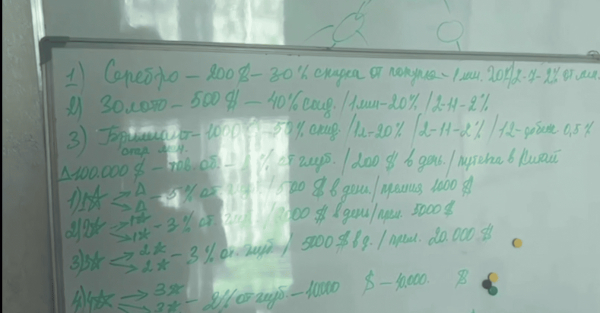 1) Серебро – 200 $ – 30% скидка от покупка – 1 лин. 20% / 2-7-2% от лин.
2) Золото – 500 $ – 40% скид. / 1 лин – 20% / 2-11-2%
3) 1000 $ – 50% скид. / 1л – 20% / 2-11-2% / 12- 0,5%
Δ 100.000 $ – тов. об. – % от глуб. / 200 $ в день / путевка в Китай
1) 1☆ < Δ Δ – 5% от глуб. / 500 $ в день / премия 1000 $
2) 2☆ < 1☆ 1☆ – 3% от глуб. / $ в день / прем. 5000 $
3) 3☆ < 2☆ 2☆ – 3% от глуб. / 5000 $ в д. / прем. 20.000 $
4) 4☆ < 3☆ 3☆ – 2% от глуб. – 10000 $ – 40.000 $